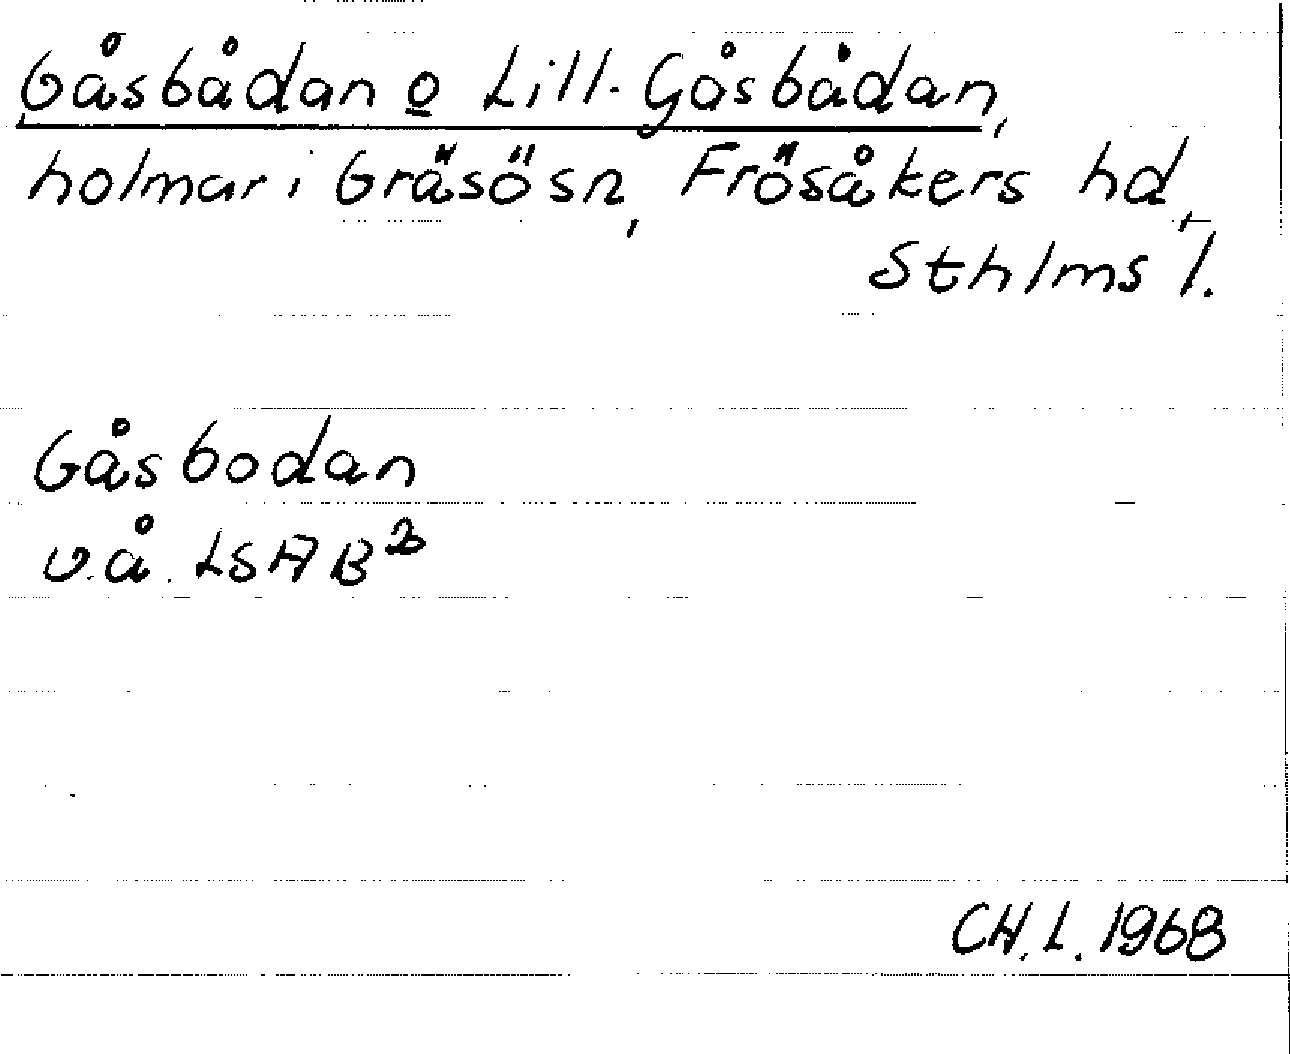 Gåsbådan o Lill-Gåsbådan,
holmar i Gräsösn, Frösåkers hd,
Sthlms l.
Gåsbodan
u.å. LSA B²
CH.L. 1968